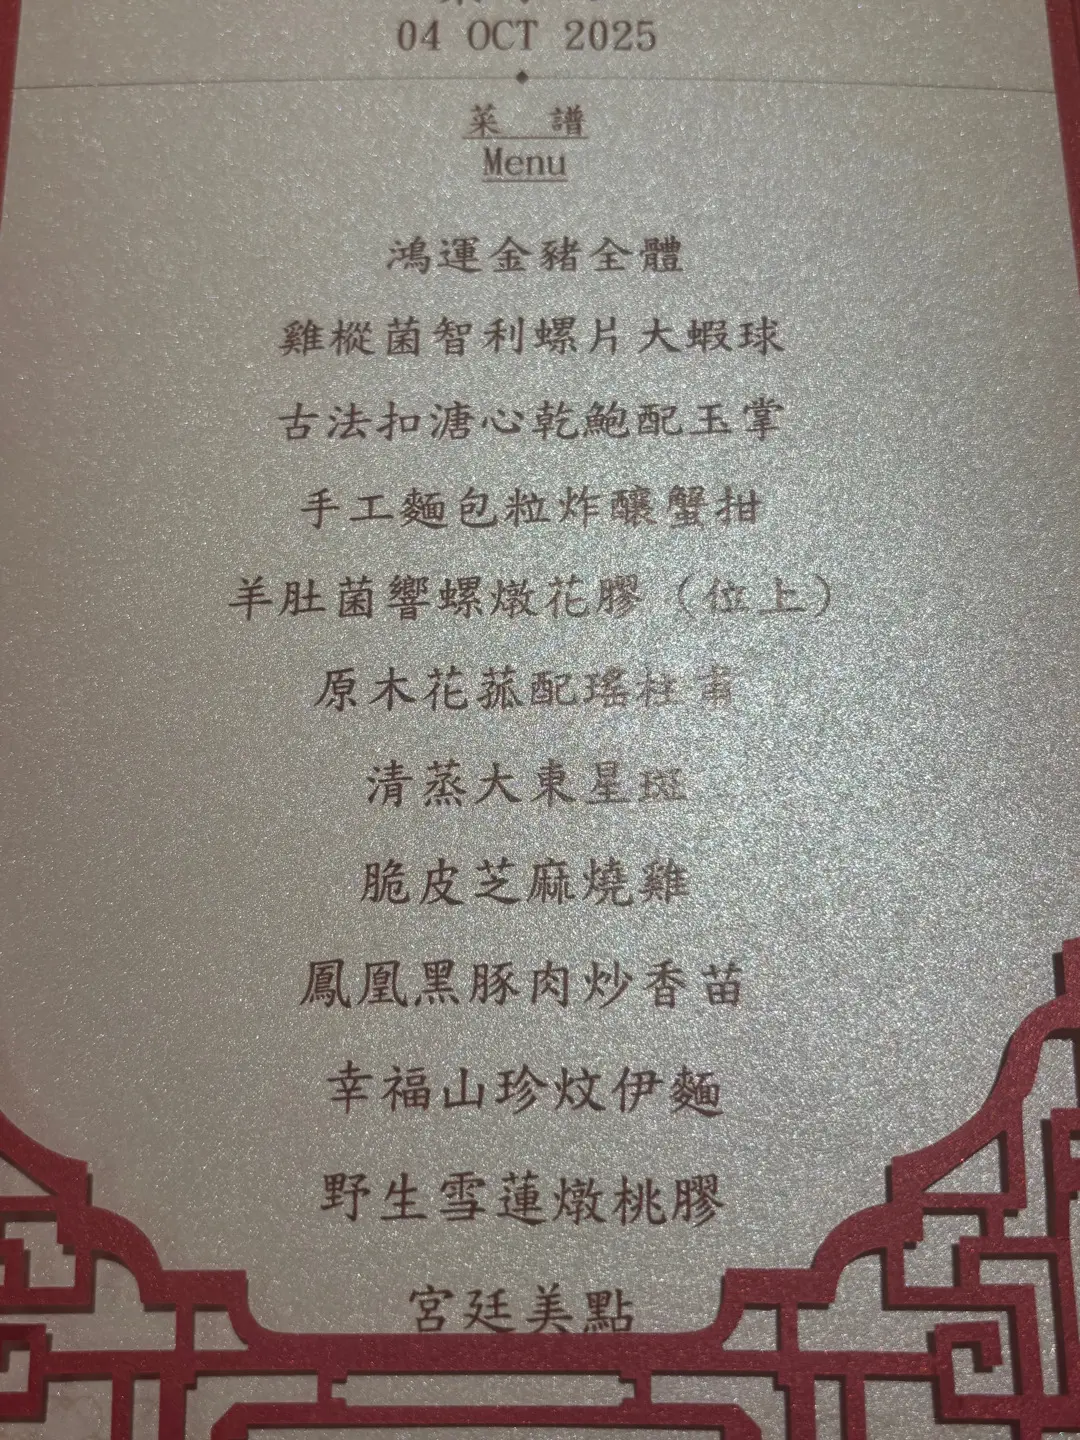 04 OCT 2025
菜 譜
Menu
鴻運金豬全體
雞樅菌智利螺片大蝦球
古法扣溏心乾鮑配玉掌
手工麵包粒炸釀蟹拑
羊肚菌響螺燉花膠（位上）
原木花菰配瑤柱甫
清蒸大東星斑
脆皮芝麻燒雞
鳳凰黑豚肉炒香苗
幸福山珍炆伊麵
野生雪蓮燉桃膠
宮廷美點